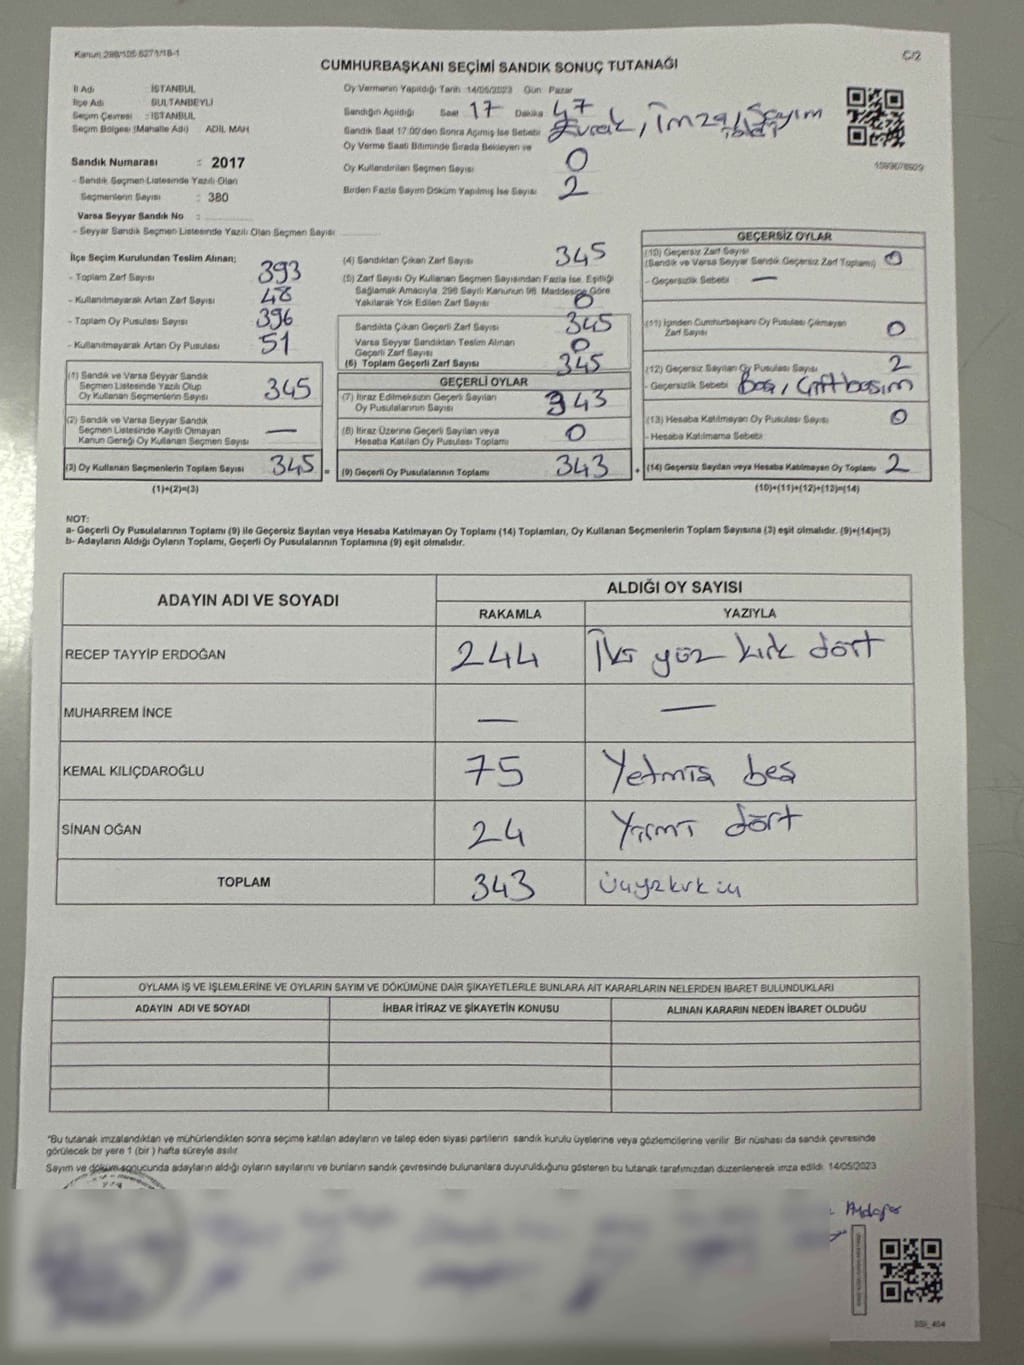 Kanun:298/105 6271/18-1
C/2
CUMHURBAŞKANI SEÇİMİ SANDIK SONUÇ TUTANAĞI
İl Adı : İSTANBUL
İlçe Adı : SULTANBEYLİ
Seçim Çevresi : İSTANBUL
Seçim Bölgesi (Mahalle Adı) ADİL MAH
Sandık Numarası : 2017
- Sandık Seçmen Listesinde Yazılı Olan
Seçmenlerin Sayısı : 380
Varsa Seyyar Sandık No :
- Seyyar Sandık Seçmen Listesinde Yazılı Olan Seçmen Sayısı
Oy Vermenin Yapıldığı Tarih :14/05/2023 Gün : Pazar
Sandığın Açıldığı Saat 17 Dakika 47
Sandık Saat 17:00'den Sonra Açılmış İse Sebebi Evrak, İmza, Sayım
Oy Verme Saati Bitiminde Sırada Bekleyen ve
Oy Kullandırılan Seçmen Sayısı 0
Birden Fazla Sayım Döküm Yapılmış İse Sayısı 2
İlçe Seçim Kurulundan Teslim Alınan;
- Toplam Zarf Sayısı 393
- Kullanılmayarak Artan Zarf Sayısı 48
- Toplam Oy Pusulası Sayısı 396
- Kullanılmayarak Artan Oy Pusulası 51
(1) Sandık ve Varsa Seyyar Sandık
Seçmen Listesinde Yazılı Olup
Oy Kullanan Seçmenlerin Sayısı 345
(2) Sandık ve Varsa Seyyar Sandık
Seçmen Listesinde Kayıtlı Olmayan
Kanun Gereği Oy Kullanan Seçmen Sayısı —
(3) Oy Kullanan Seçmenlerin Toplam Sayısı 345 =
(1)+(2)=(3)
(4) Sandıktan Çıkan Zarf Sayısı 345
(5) Zarf Sayısı Oy Kullanan Seçmen Sayısından Fazla İse, Eşitliği
Sağlamak Amacıyla, 298 Sayılı Kanunun 98. Maddesine Göre
Yakılarak Yok Edilen Zarf Sayısı 0
Sandıkta Çıkan Geçerli Zarf Sayısı 345
Varsa Seyyar Sandıktan Teslim Alınan
Geçerli Zarf Sayısı 0
(6) Toplam Geçerli Zarf Sayısı 345
GEÇERLİ OYLAR
(7) İtiraz Edilmeksizin Geçerli Sayılan
Oy Pusulalarının Sayısı 343
(8) İtiraz Üzerine Geçerli Sayılan veya
Hesaba Katılan Oy Pusulası Toplamı 0
(9) Geçerli Oy Pusulalarının Toplamı 343 +
GEÇERSİZ OYLAR
(10) Geçersiz Zarf Sayısı
(Sandık ve Varsa Seyyar Sandık Geçersiz Zarf Toplamı) 0
- Geçersizlik Sebebi —
(11) İçinden Cumhurbaşkanı Oy Pusulası Çıkmayan
Zarf Sayısı 0
(12) Geçersiz Sayılan Oy Pusulası Sayısı 2
- Geçersizlik Sebebi Boş, Çift basım
(13) Hesaba Katılmayan Oy Pusulası Sayısı 0
- Hesaba Katılmama Sebebi
(14) Geçersiz Sayılan veya Hesaba Katılmayan Oy Toplamı 2
(10)+(11)+(12)+(13)=(14)
NOT:
a- Geçerli Oy Pusulalarının Toplamı (9) ile Geçersiz Sayılan veya Hesaba Katılmayan Oy Toplamı (14) Toplamları, Oy Kullanan Seçmenlerin Toplam Sayısına (3) eşit olmalıdır. (9)+(14)=(3)
b- Adayların Aldığı Oyların Toplamı, Geçerli Oy Pusulalarının Toplamına (9) eşit olmalıdır.
ADAYIN ADI VE SOYADI
ALDIĞI OY SAYISI
RAKAMLA YAZIYLA
RECEP TAYYİP ERDOĞAN 244 İki yüz kırk dört
MUHARREM İNCE — —
KEMAL KILIÇDAROĞLU 75 Yetmiş beş
SİNAN OĞAN 24 Yirmi dört
TOPLAM 343 Üçyüzkırk üç
OYLAMA İŞ VE İŞLEMLERİNE VE OYLARIN SAYIM VE DÖKÜMÜNE DAİR ŞİKAYETLERLE BUNLARA AİT KARARLARIN NELERDEN İBARET BULUNDUKLARI
ADAYIN ADI VE SOYADI İHBAR İTİRAZ VE ŞİKAYETİN KONUSU ALINAN KARARIN NEDEN İBARET OLDUĞU
*Bu tutanak imzalandıktan ve mühürlendikten sonra seçime katılan adayların ve talep eden siyasi partilerin sandık kurulu üyelerine veya gözlemcilerine verilir. Bir nüshası da sandık çevresinde
görülecek bir yere 1 (bir ) hafta süreyle asılır.
Sayım ve döküm sonucunda adayların aldığı oyların sayılarını ve bunların sandık çevresinde bulunanlara duyurulduğunu gösteren bu tutanak tarafımızdan düzenlenerek imza edildi. 14/05/2023